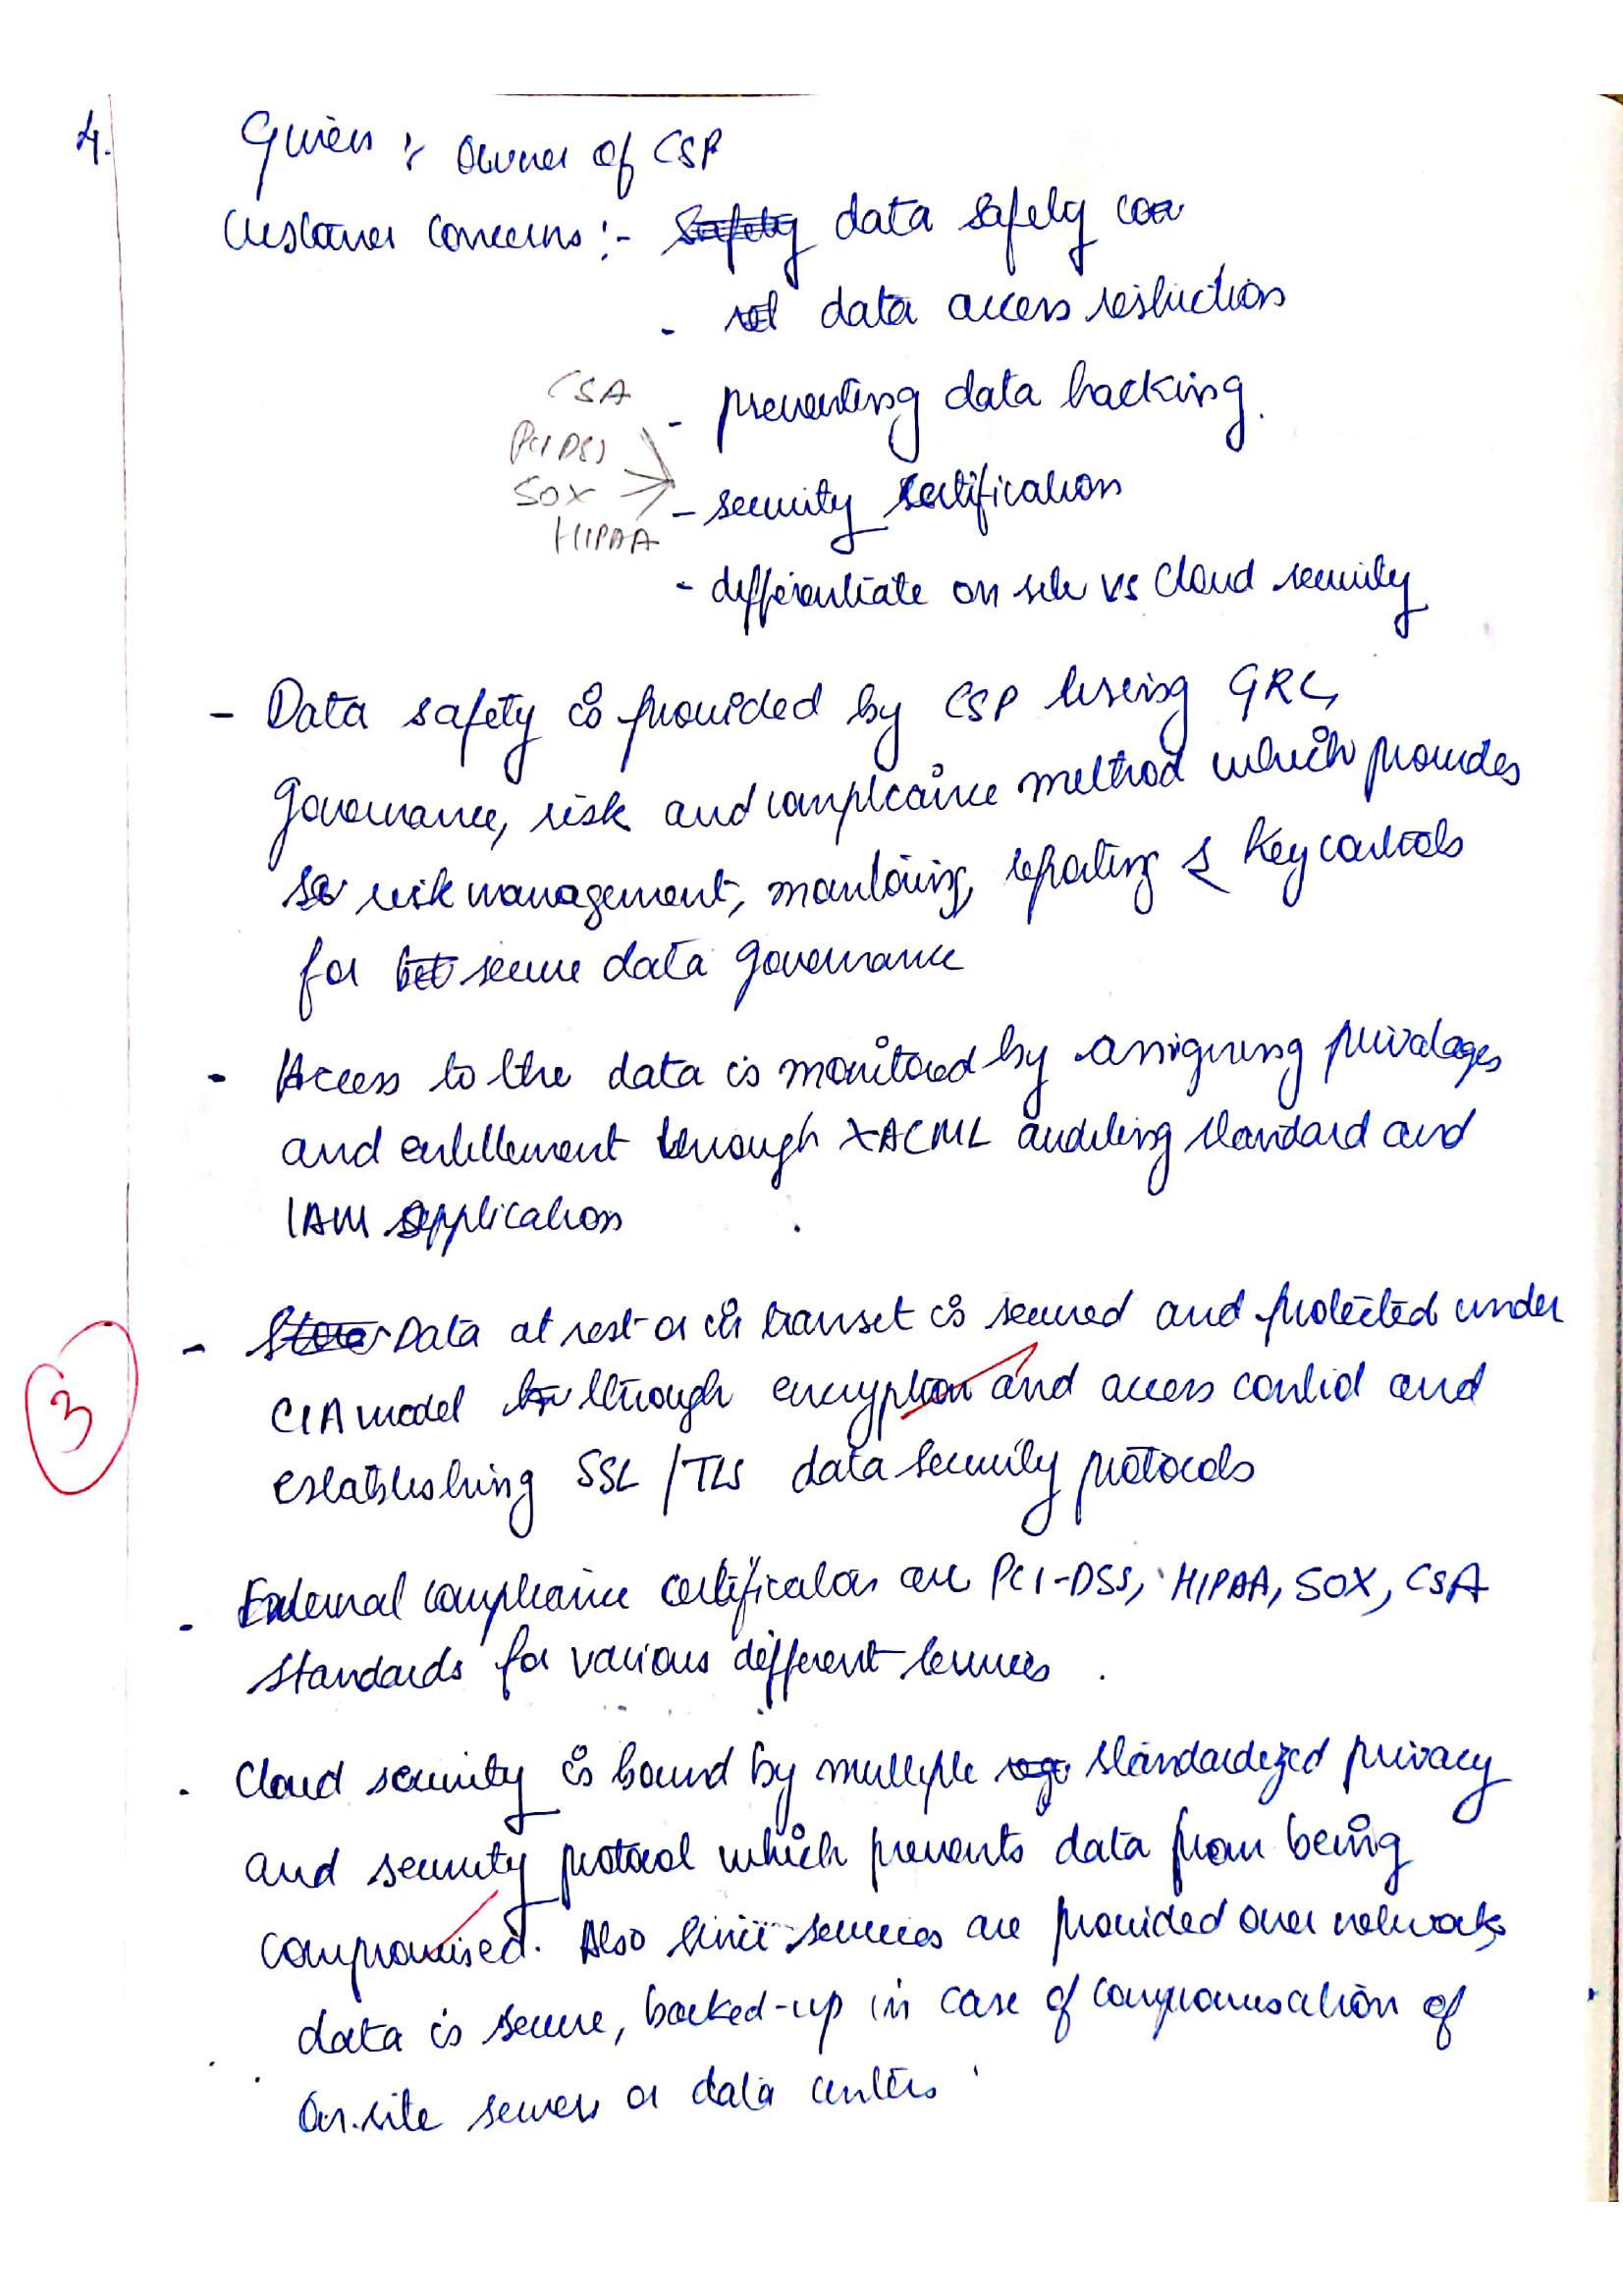 4.
Given : Owner of CSP
Customer Concerns :- Safety data safety con
- data access restriction
CSA
- preventing data hacking.
PCI DSS
SOX
- security certification
HIPAA
- differentiate on site vs Cloud security
- Data safety is provided by CSP using GRC,
Governance, risk and compliance method which provides
risk management, monitoring, reporting & Key controls
for secure data governance
- Access to the data is monitored by assigning privalages
and entitlement through XACML auditing standard and
IAM application
- Data at rest or in transet is secured and protected under
CIA model through encryption and access control and
establishing SSL/TLS data security protocols
3
- External compliance certification are PCI-DSS, HIPAA, SOX, CSA
standards for various different services.
. Cloud security is bound by multiple standardized privacy
and security protocol which prevents data from being
compromised. Also since services are provided over network,
data is secure, backed-up in case of compromisation of
On.site servers or data centers